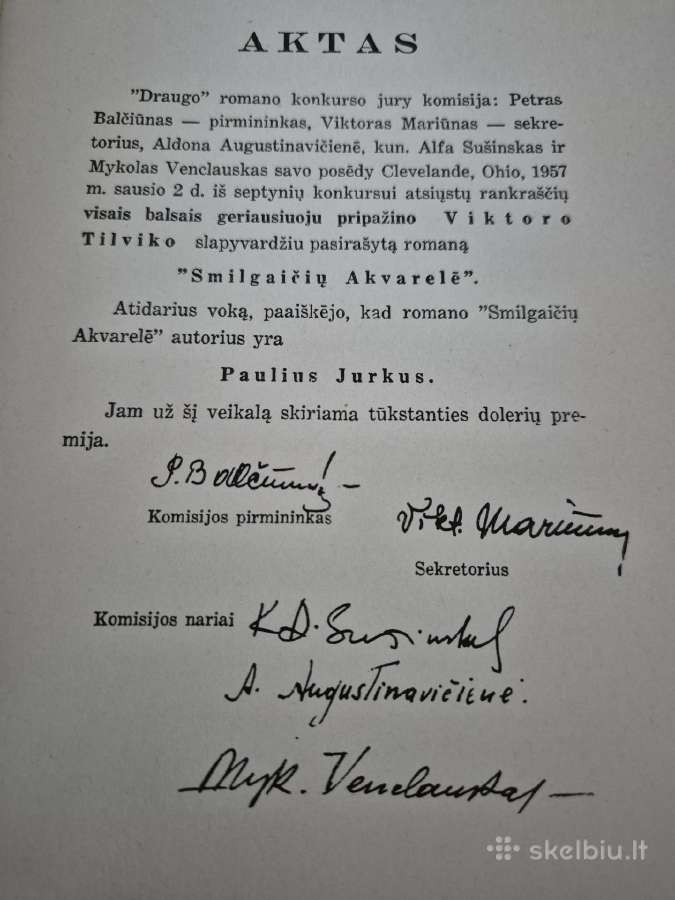 AKTAS
"Draugo" romano konkurso jury komisija: Petras
Balčiūnas — pirmininkas, Viktoras Mariūnas — sekre-
torius, Aldona Augustinavičienė, kun. Alfa Sušinskas ir
Mykolas Venclauskas savo posėdy Clevelande, Ohio, 1957
m. sausio 2 d. iš septynių konkursui atsiųstų rankraščių
visais balsais geriausiuoju pripažino Viktoro
Tilviko slapyvardžiu pasirašytą romaną
"Smilgaičių Akvarelė".
Atidarius voką, paaiškėjo, kad romano "Smilgaičių
Akvarelė" autorius yra
Paulius Jurkus.
Jam už šį veikalą skiriama tūkstanties dolerių pre-
mija.
P. Balčiūnas
Komisijos pirmininkas
Vikt. Mariūnas
Sekretorius
Komisijos nariai
K. A. Sušinskas
A. Augustinavičienė.
Myk. Venclauskas
skelbiu.lt